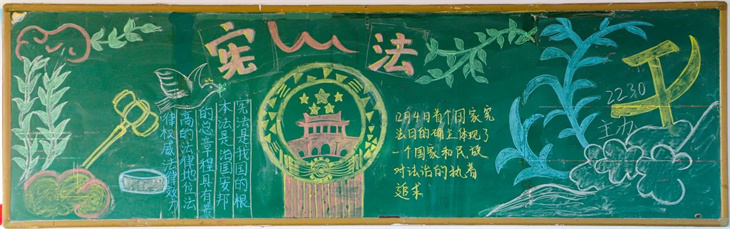 宪法
宪法是我国的根
本法是治国安邦
的总章程具有最
高的法律地位法
律权威法律效力
12月4日首个国家宪
法日的确立体现了
一个国家和民族
对法治的执着
追求
2230
主办